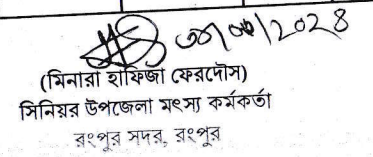 (মিনারা হাফিজা ফেরদৌস)
সিনিয়র উপজেলা মৎস্য কর্মকর্তা
রংপুর সদর, রংপুর